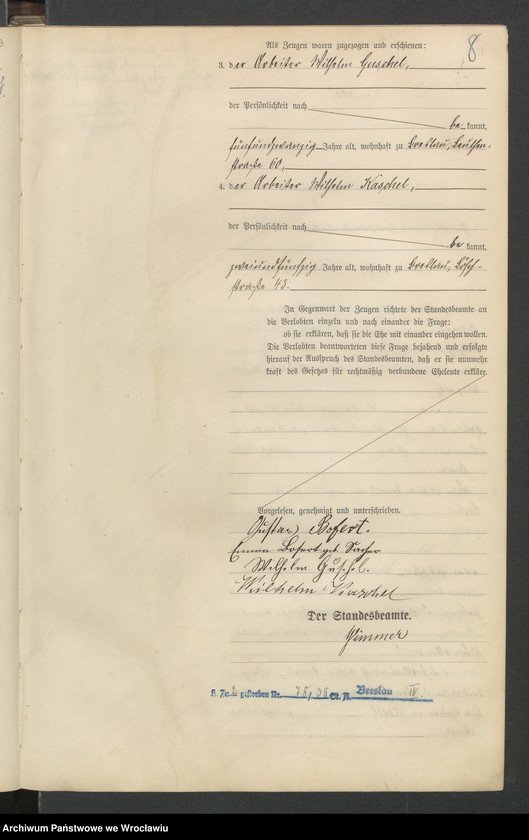 8
Als Zeugen waren zugezogen und erschienen:
3. der Arbeiter Wilhelm Guschel,
der Persönlichkeit nach
be kannt,
fünfundzwanzig Jahre alt, wohnhaft zu Breslau, Leuthen-
straße 60,
4. der Arbeiter Wilhelm Kaschel,
der Persönlichkeit nach
be kannt,
zweiundfünfzig Jahre alt, wohnhaft zu Breslau, Lösch-
straße 43.
In Gegenwart der Zeugen richtete der Standesbeamte an
die Verlobten einzeln und nach einander die Frage:
ob sie erklären, daß sie die Ehe mit einander eingehen wollen.
Die Verlobten beantworteten diese Frage bejahend und erfolgte
hierauf der Ausspruch des Standesbeamten, daß er sie nunmehr
kraft des Gesetzes für rechtmäßig verbundene Eheleute erkläre.
Vorgelesen, genehmigt und unterschrieben.
Gustav Bofert.
Emma Bofert geb. Sacher
Wilhelm Guschel.
Wilhelm Kaschel
Der Standesbeamte.
Wimmer
gestorben Nr. 78/38 St. A. Breslau IV.
Archiwum Państwowe we Wrocławiu